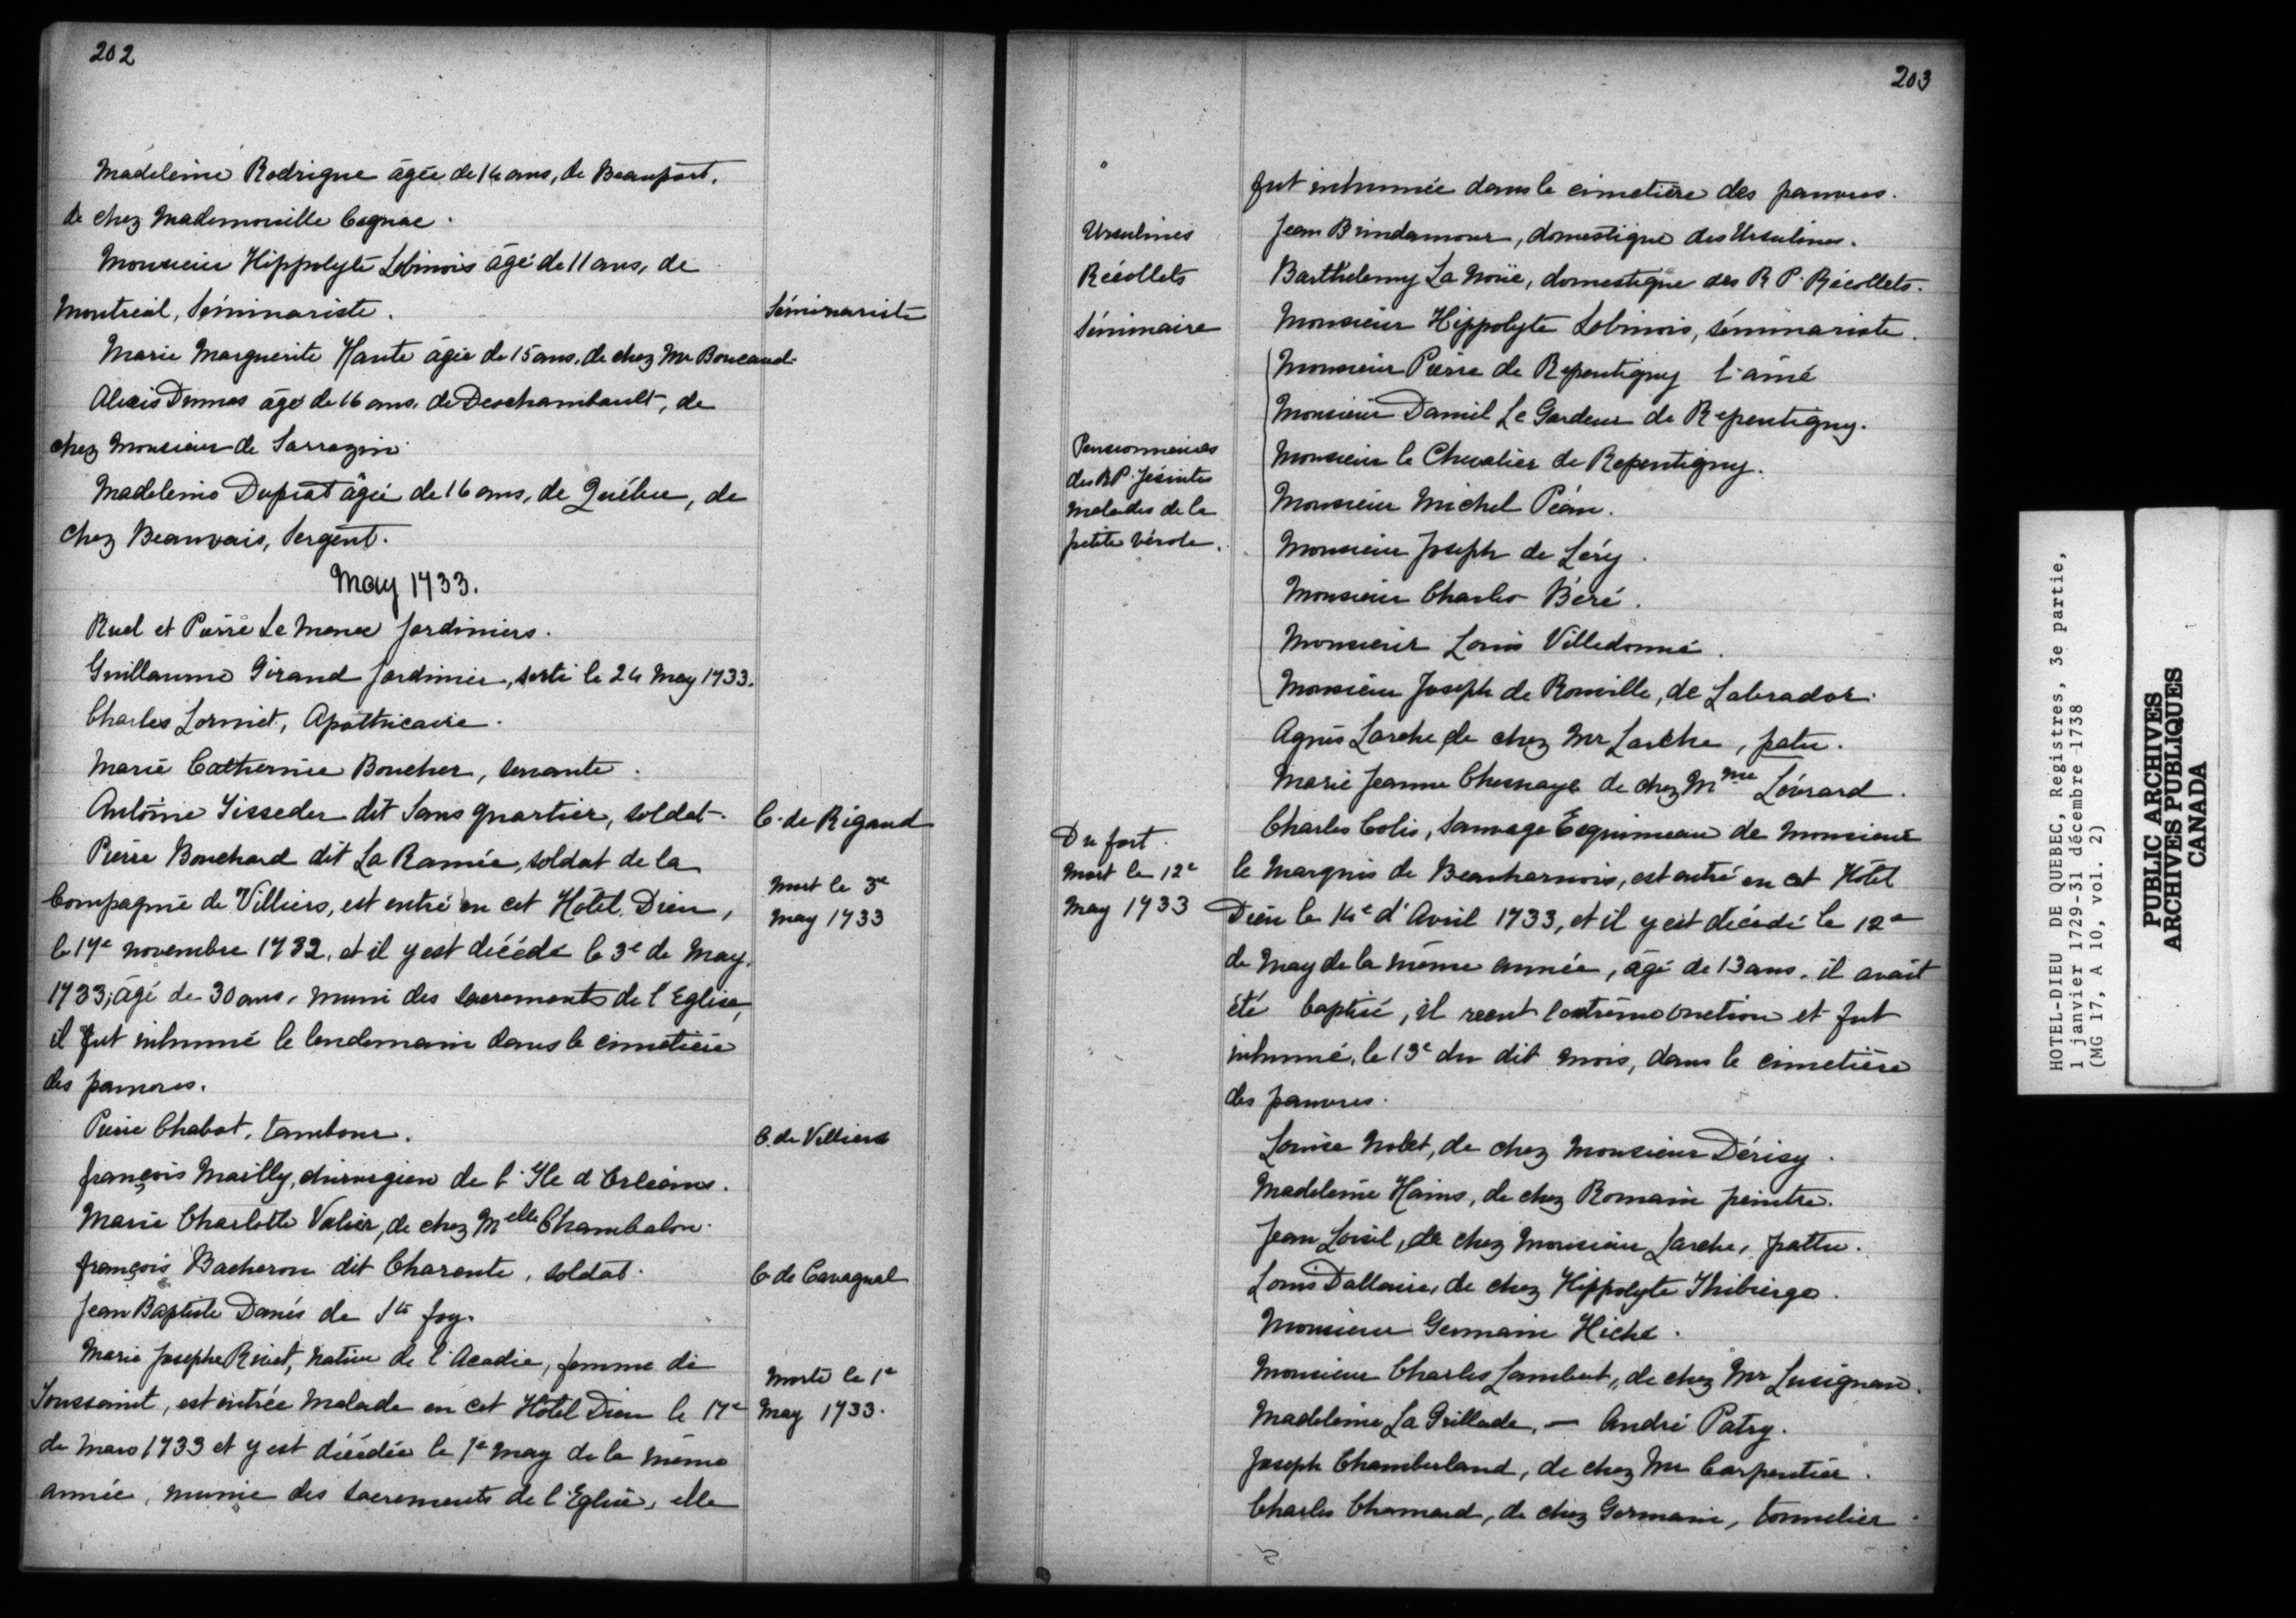 202
Madeleine Rodrigue âgée de 14 ans, de Beauport,
de chez Mademoiselle Cognac.
Monsieur Hippolyte Lebinois âgé de 11 ans, de
Montréal, Séminariste.
Séminariste
Marie Marguerite Hante âgée de 15 ans, de chez Mr Boucaud.
Alexis Dumas âgé de 16 ans, de Deschambault, de
chez Monsieur de Sarrazin.
Madeleine Duprat âgée de 16 ans, de Québec, de
chez Beauvais, Sergent.
May 1733.
Ruel et Pierre Le Mene Jardiniers.
Guillaume Girand Jardinier, sorti le 24 May 1733.
Charles Lormet, Apothicaire.
Marie Catherine Boucher, servante.
Antoine Tisseder dit Sans quartier, soldat.
C. de Rigaud
Pierre Bouchard dit La Ramée, soldat de la
Compagnie de Villiers, est entré en cet Hôtel Dieu,
le 17e novembre 1732, et il y est décédé le 3e de May,
1733, âgé de 30 ans, muni des sacrements de l'Eglise,
il fut inhumé le lendemain dans le cimetière
des pauvres.
Mort le 3e
May 1733
Pierre Chabot, tambour.
C. de Villiers
françois Mailly, chirurgien de l'Ile d'Orléans.
Marie Charlotte Valier, de chez Melle Chambalon.
françois Bacheron dit Charente, soldat.
C. de Cavagnal
Jean Baptiste Danés de Ste foy.
Marie Josephe Rivet, native de l'Acadie, femme de
Toussaint, est entrée malade en cet Hôtel Dieu le 17e
de Mars 1733 et y est décédée le 1e May de la même
année, munie des sacrements de l'Eglise, elle
Morte le 1e
May 1733.
203
fut inhumée dans le cimetière des pauvres.
Ursulines
Jean Brindamour, domestique des Ursulines.
Récollets
Barthélemy La Noüe, domestique des R P. Récollets.
Séminaire
Monsieur Hippolyte Lebinois, séminariste.
Monsieur Pierre de Repentigny l'ainé
Monsieur Daniel Le Gardeur de Repentigny.
Monsieur le Chevalier de Repentigny.
Monsieur Michel Péan.
Monsieur Joseph de Léry.
Monsieur Charles Béré.
Monsieur Louis Villedonné.
Monsieur Joseph de Rouville, de Labrador.
Pensionnaires
des RP. Jésuites
malades de la
petite vérole.
Agnès Larche de chez Mr Larche, patu.
Marie Jeanne Chesnaye de chez Mme Lévrard.
Charles Colis, Sauvage Esquimeau de Monsieur
le Marquis de Beauharnois, est entré en cet Hôtel
Dieu le 14e d'Avril 1733, et il y est décédé le 12e
de May de la même année, âgé de 13 ans, il avait
été baptisé, il reçut l'extrême onction et fut
inhumé, le 13e du dit mois, dans le cimetière
des pauvres.
Du fort.
Mort le 12e
May 1733
Louise Nolet, de chez Monsieur Dérisy.
Madeleine Hains, de chez Romain peintre.
Jean Loisel, de chez Monsieur Larche, pattu.
Louis Dallaire, de chez Hippolyte Thibierge.
Monsieur Germain Hiché.
Monsieur Charles Lambert, de chez Mr Lusignan.
Madeleine La Grillade, — André Patry.
Joseph Chamberland, de chez Mr Carpentier.
Charles Chamard, de chez Germain, tonnelier.
HOTEL-DIEU DE QUEBEC, Registres, 3e partie,
1 janvier 1729-31 décembre 1738
(MG 17, A 10, vol. 2)
PUBLIC ARCHIVES
ARCHIVES PUBLIQUES
CANADA